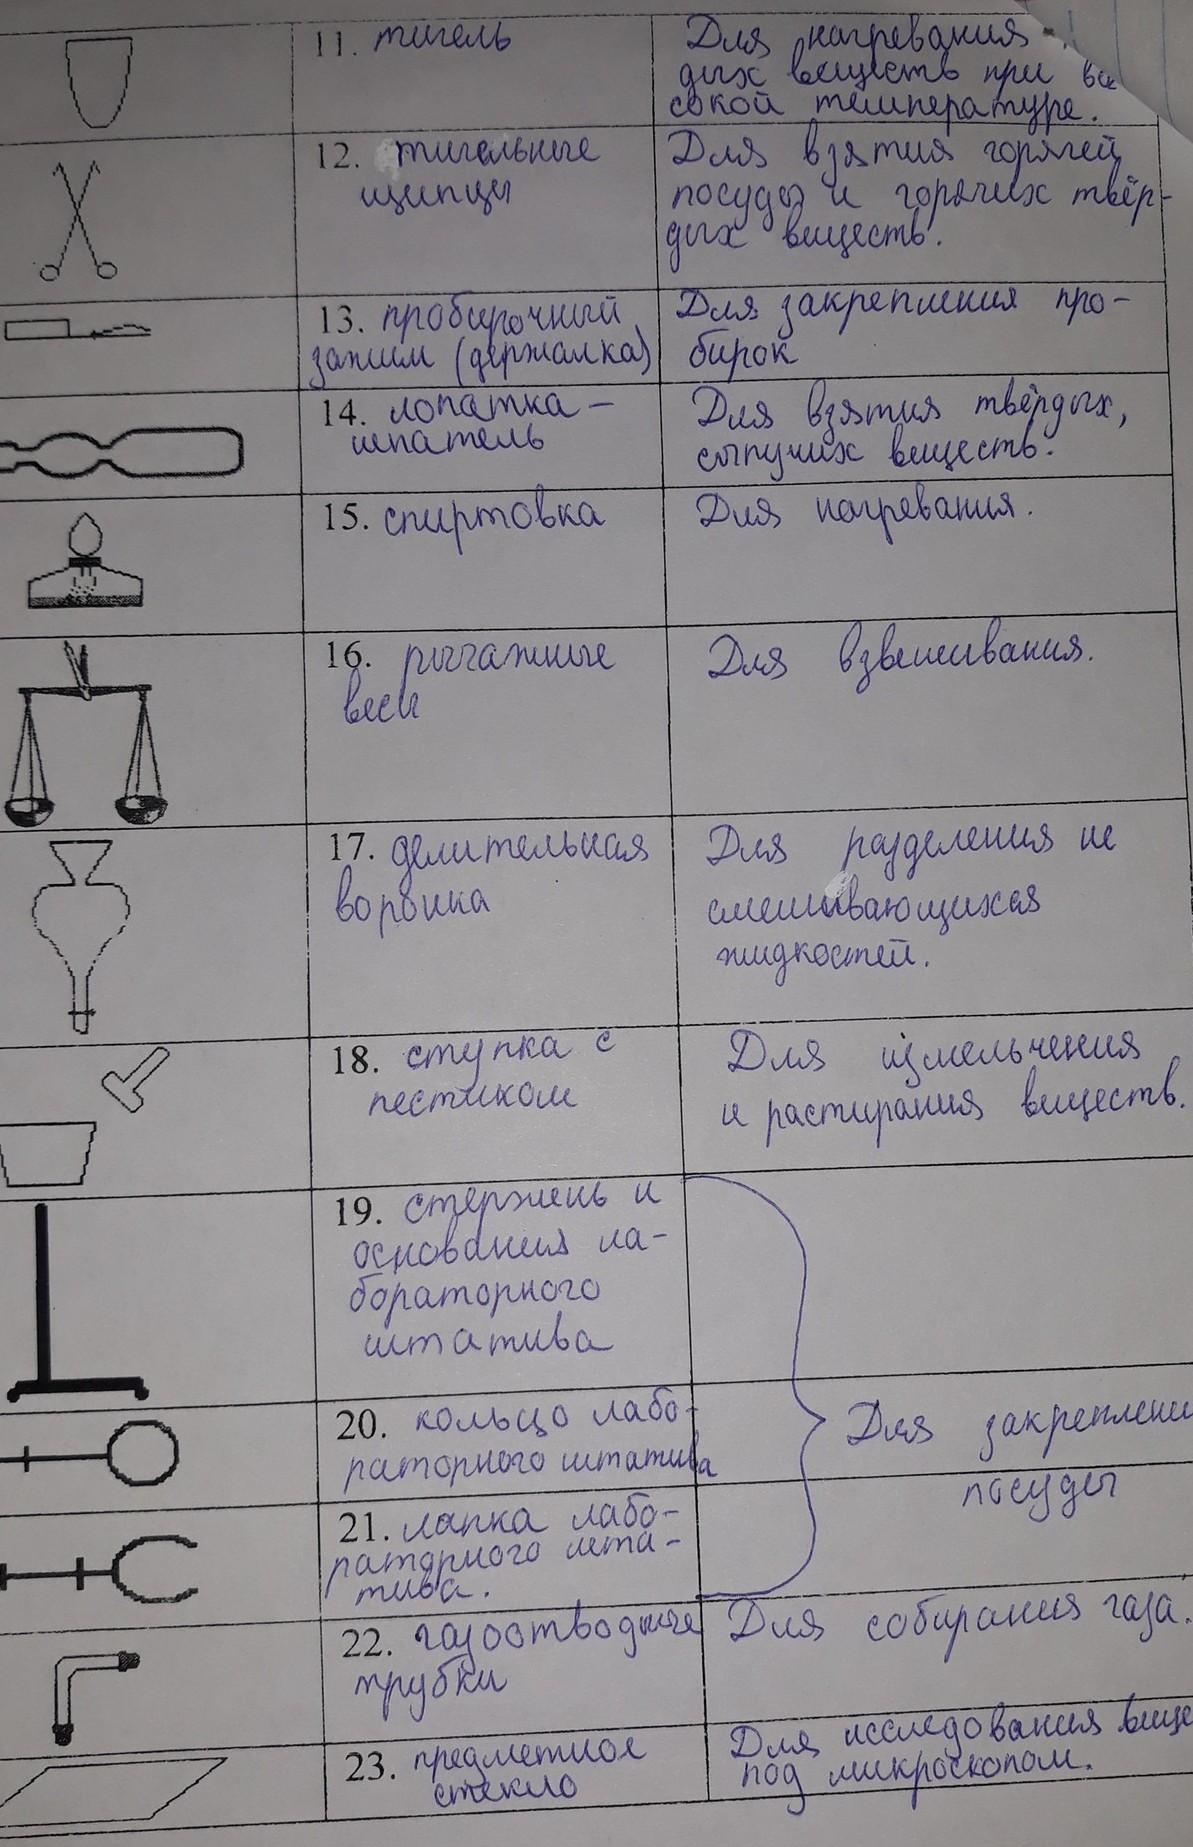 11. тигель
Для нагревания
дых веществ при вы
сокой температуре.
12. тигельные
щипцы
Для взятия горячей
посуды и горячих твёр-
дых веществ.
13. пробирочный
зажим (держалка)
Для закрепления про-
бирок
14. лопатка –
шпатель
Для взятия твёрдых,
сыпучих веществ.
15. спиртовка
Для нагревания.
16. рычажные
весы
Для взвешивания.
17. делительная
воронка
Для разделения не
смешивающихся
жидкостей.
18. ступка с
пестиком
Для измельчения
и растирания веществ.
19. стержень и
основания ла-
бораторного
штатива
20. кольцо лабо-
раторного штатива
21. лапка лабо-
раторного шта-
тива.
Для закреплени
посуды
22. газоотводные
трубки
Для собирания газа.
23. предметное
стекло
Для исследования веще
под микроскопом.